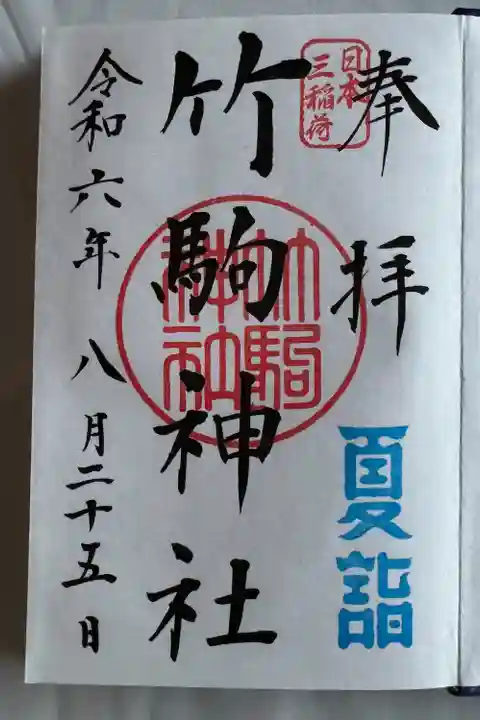 奉拝
日本
三稲荷
夏詣
竹駒神社
令和六年八月二十五日